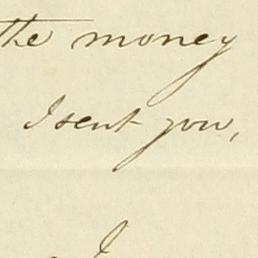 the money
I sent you,
I